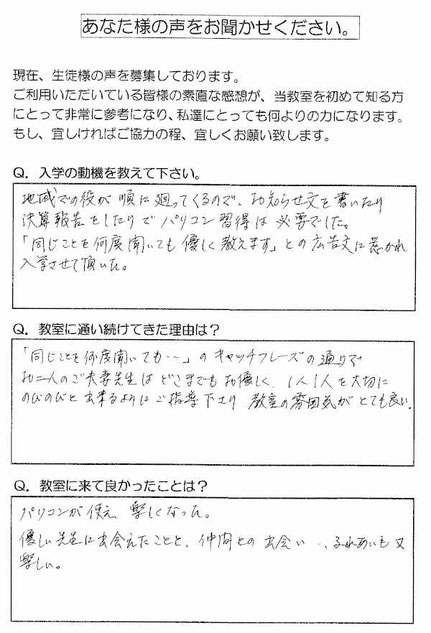 あなた様の声をお聞かせください。
現在、生徒様の声を募集しております。
ご利用いただいている皆様の素直な感想が、当教室を初めて知る方
にとって非常に参考になり、私達にとっても何よりの力になります。
もし、宜しければご協力の程、宜しくお願い致します。
Q．入学の動機を教えて下さい。
地域での役が順に廻ってくるので、お知らせ文を書いたり
決算報告をしたりでパソコン習得は必要でした。
「同じことを何度聞いても優しく教えます」との広告文に惹かれ
入学させて頂いた。
Q．教室に通い続けてきた理由は？
「同じことを何度聞いても‥」のキャッチフレーズの通りで
お二人のご夫妻先生はどこまでもお優しく、1人1人を大切に
のびのびと出来るようにご指導下さり 教室の雰囲気がとても良い。
Q．教室に来て良かったことは？
パソコンが使え 楽しくなった。
優しい先生に出会えたことと、仲間との出会い‥、ふれあいも又
楽しい。